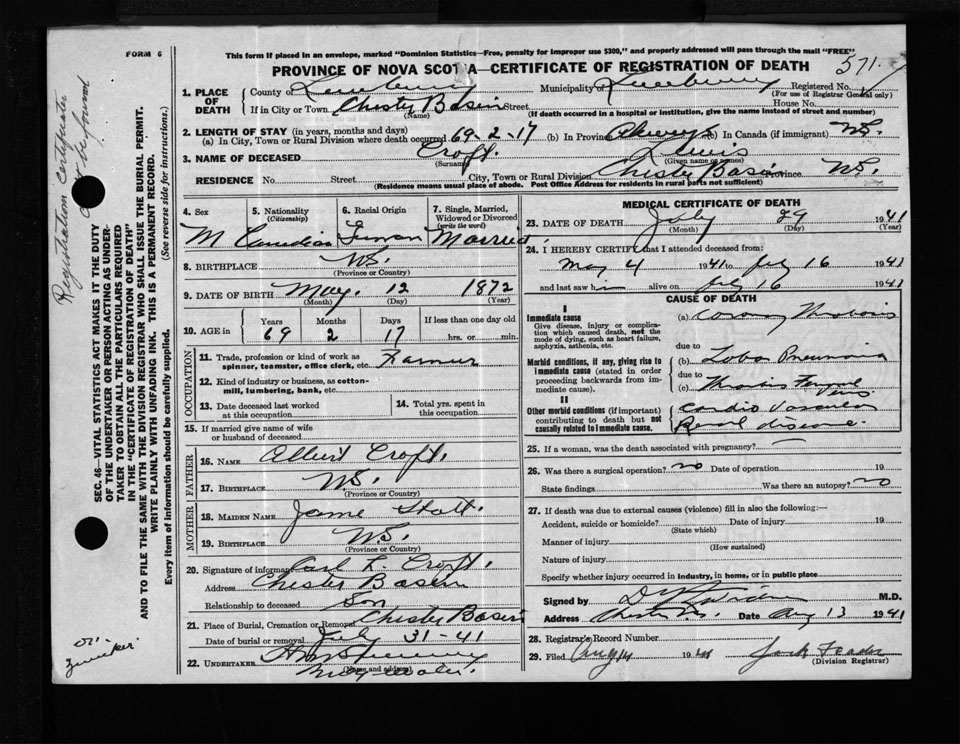 FORM 6
This form if placed in an envelope, marked "Dominion Statistics—Free, penalty for improper use $300," and properly addressed will pass through the mail "FREE"
PROVINCE OF NOVA SCOTIA—CERTIFICATE OF REGISTRATION OF DEATH
571
1. PLACE OF DEATH
County of Lunenburg Municipality of Lunenburg Registered No.
(For use of Registrar General only)
If in City or Town Chester Basin Street House No.
(Name) (If death occurred in a hospital or institution, give the name instead of street and number)
2. LENGTH OF STAY (in years, months and days)
(a) In City, Town or Rural Division where death occurred 69-2-17 (b) In Province Always (c) In Canada (if immigrant) N.S.
3. NAME OF DECEASED Croft. Lewis
(Surname) (Given name or names)
RESIDENCE No. Street City, Town or Rural Division Chester Basin Province N.S.
(Residence means usual place of abode. Post Office Address for residents in rural parts not sufficient)
4. Sex 5. Nationality (Citizenship) 6. Racial Origin 7. Single, Married, Widowed or Divorced (write the word)
M Canadian German Married
8. BIRTHPLACE N.S.
(Province or Country)
9. DATE OF BIRTH May. 12 1872
(Month) (Day) (Year)
10. AGE in Years Months Days If less than one day old
69 2 17 hrs. or min.
OCCUPATION
11. Trade, profession or kind of work as spinner, teamster, office clerk, etc. Farmer
12. Kind of industry or business, as cotton-mill, lumbering, bank, etc.
13. Date deceased last worked at this occupation
14. Total yrs. spent in this occupation
15. If married give name of wife or husband of deceased
FATHER
16. NAME Albert Croft.
17. BIRTHPLACE N.S.
(Province or Country)
MOTHER
18. MAIDEN NAME Jane
19. BIRTHPLACE N.S.
(Province or Country)
20. Signature of informant Carl L. Croft.
Address Chester Basin
Relationship to deceased Son
21. Place of Burial, Cremation or Removal Chester Basin
Date of burial or removal July 31-41
22. UNDERTAKER
MEDICAL CERTIFICATE OF DEATH
23. DATE OF DEATH July 29 1941
(Month) (Day) (Year)
24. I HEREBY CERTIFY that I attended deceased from:
May 4 1941 to July 16 1941
and last saw him alive on July 16 1941
CAUSE OF DEATH
I
Immediate cause (a) Coronary Thrombosis
Give disease, injury or complication which caused death, not the mode of dying, such as heart failure, asphyxia, asthenia, etc.
due to
Morbid conditions, if any, giving rise to immediate cause (stated in order proceeding backwards from immediate cause).
(b) Lobar Pneumonia
due to
(c)
II
Other morbid conditions (if important) contributing to death but not causally related to immediate cause.
Cardio Vascular
Renal disease.
25. If a woman, was the death associated with pregnancy?
26. Was there a surgical operation? no Date of operation 19
State findings Was there an autopsy? no
27. If death was due to external causes (violence) fill in also the following:—
Accident, suicide or homicide? Date of injury 19
(State which)
Manner of injury
(How sustained)
Nature of injury
Specify whether injury occurred in industry, in home, or in public place
Signed by M.D.
Address Chester N.S. Date Aug 13 1941
28. Registrar's Record Number
29. Filed Aug 14 1941
(Division Registrar)
SEC. 46—VITAL STATISTICS ACT MAKES IT THE DUTY OF THE UNDERTAKER OR PERSON ACTING AS UNDERTAKER TO OBTAIN ALL THE PARTICULARS REQUIRED IN THE "CERTIFICATE OF REGISTRATION OF DEATH" AND TO FILE THE SAME WITH THE DIVISION REGISTRAR WHO SHALL ISSUE THE BURIAL PERMIT.
WRITE PLAINLY WITH UNFADING INK. THIS IS A PERMANENT RECORD.
Every item of information should be carefully supplied. (See reverse side for instructions.)
Registration Certificate
be found
Zwicker